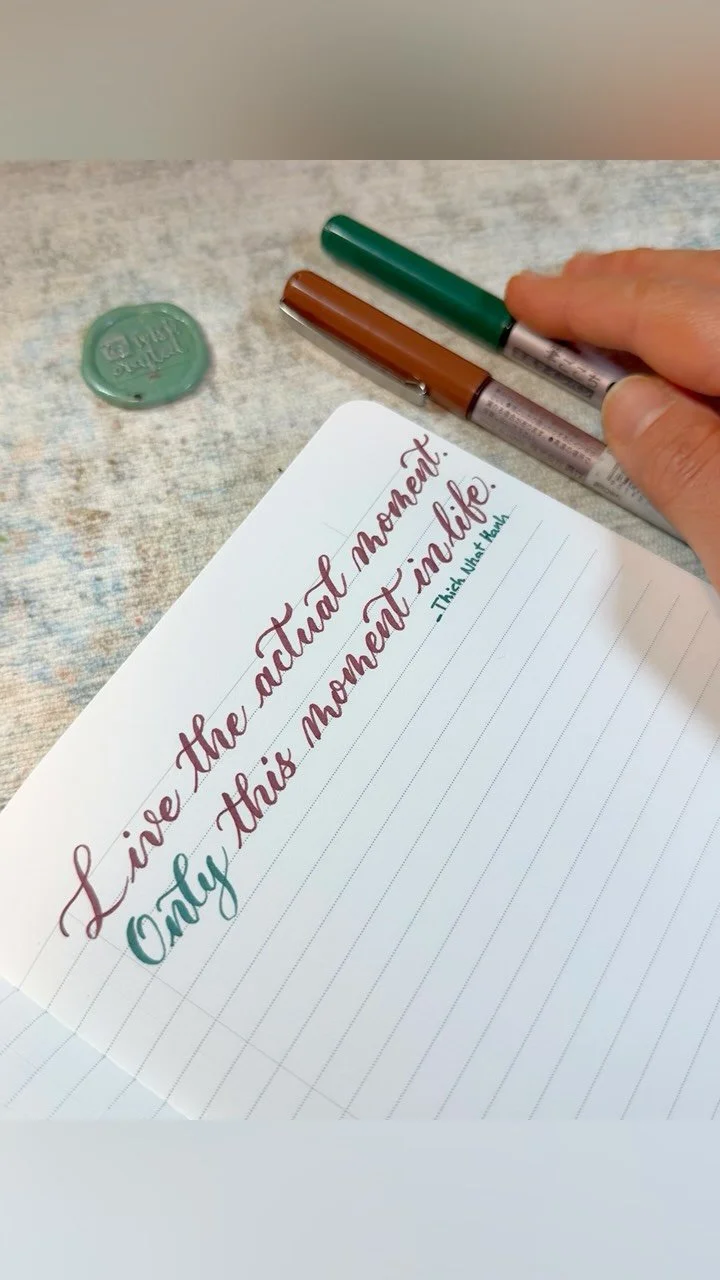 Live the actual moment.
Only this moment in life.
-Thich Nhat Hanh